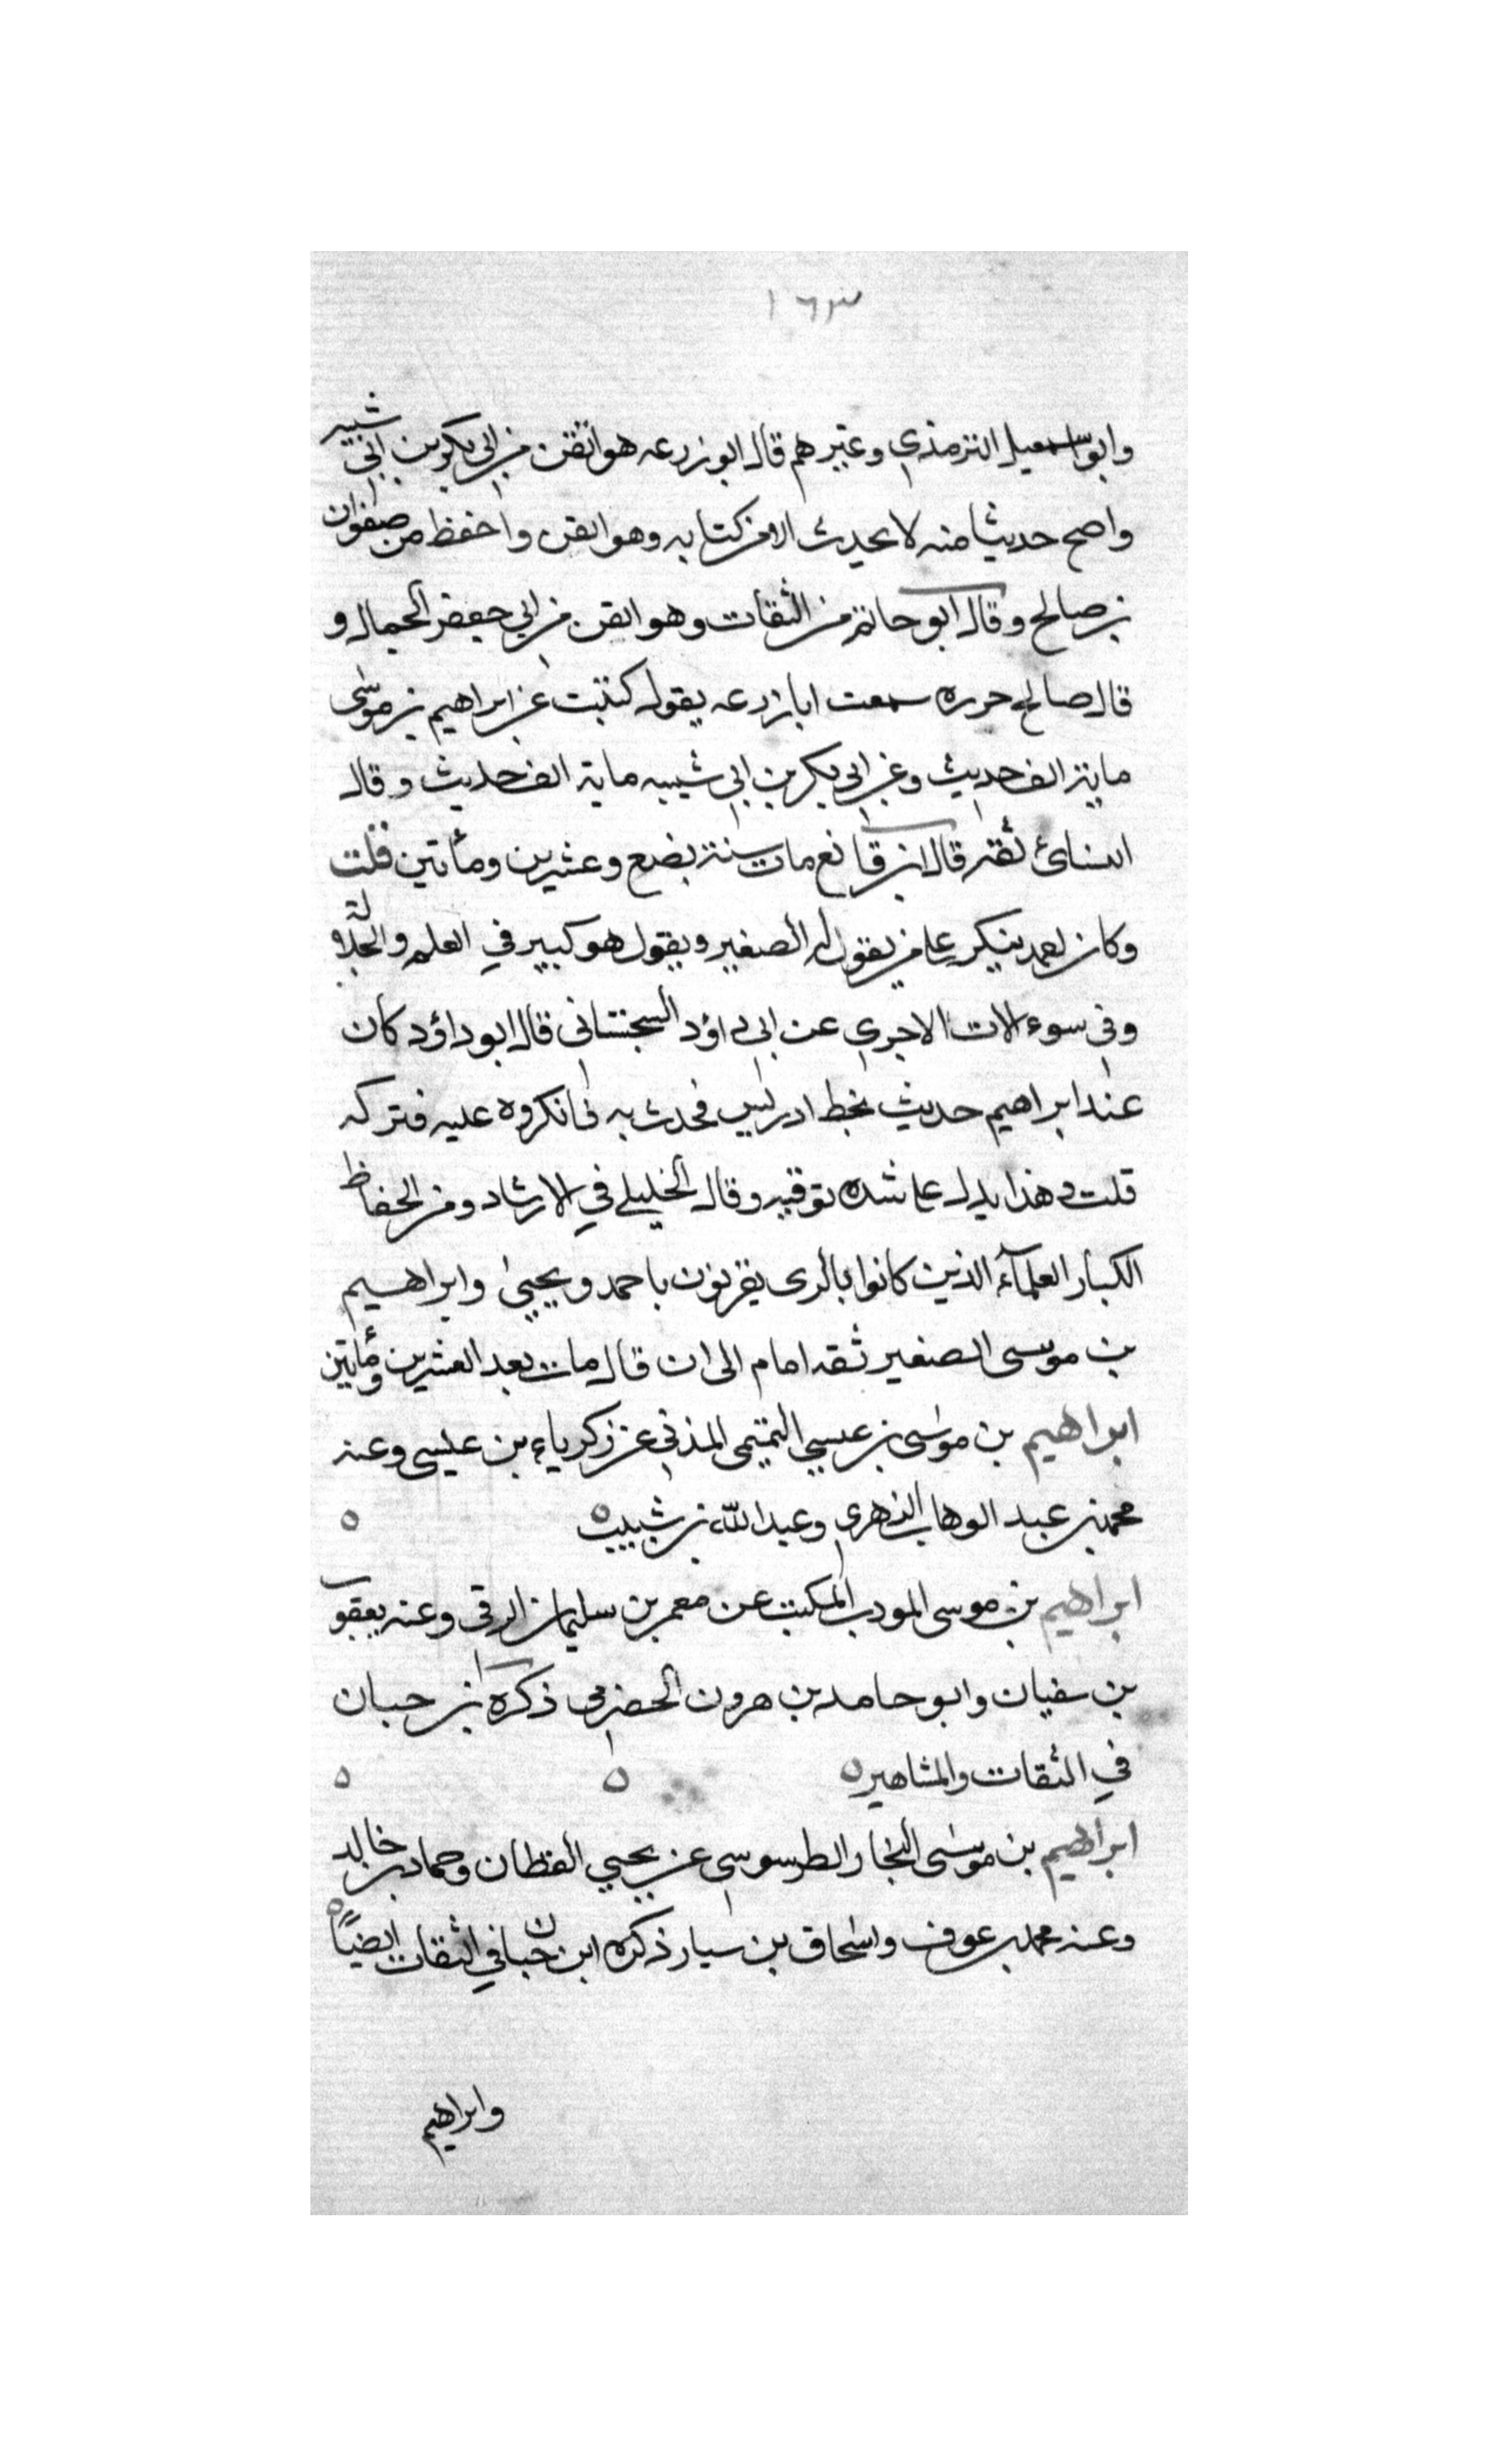 ١٦٣
وابو اسمعيل الترمذي وغيرهم قال ابو زرعه هو اتقن من ابي بكر بن ابي شيبه
واصح حديثا منه لا يحدث الا من كتابه وهو اتقن واحفظ من صفوان
بن صالح وقال ابو حاتم من الثقات وهو اتقن من ابي جعفر الجمال و
قال صالح جزره سمعت ابا زرعه يقول كتبت عن ابراهيم بن موسى
ماية الف حديث وعن ابي بكر بن ابي شيبه ماية الف حديث وقال
النسائ ثقة قال ابن قانع مات سنة بضع وعشرين ومأتين قلت
وكان احمد ينكر على من يقول له الصغير ويقول هو كبير في العلم والجلالة
وفي سوءلات الاجري عن ابي داؤد السجستاني قال ابو داؤد كان
عند ابراهيم حديث بخط ادريس فحدث به فانكروه عليه فتركه
قلت هذا يدل على شده توقيه وقال الخليلي في الارشاد ومن الحفاظ
الكبار العلمآء الذين كانوا بالري يقرنون باحمد ويحيى وابراهيم
بن موسى الصغير ثقه امام الى ان قال مات بعد العشرين ومأتين
ابراهيم بن موسى بن عيسي التميمي المدني عن زكرياء بن عيسى وعنه
محمد بن عبد الوهاب الزهري وعبد الله بن شبيب ه ه
ابراهيم بن موسى المودب المكتب عن معمر بن سليمان الرقي وعنه يعقوب
بن سفيان وابو حامد بن هرون الحضرمي ذكره ابن حبان
في الثقات والمشاهير ه ه ه
ابراهيم بن موسى النجار الطرسوسي عن يحيي القطان وحماد بن خالد
وعنه محمد بن عوف واسحاق بن سيار ذكره ابن حبان في الثقات ايضاً ه
وابراهيم